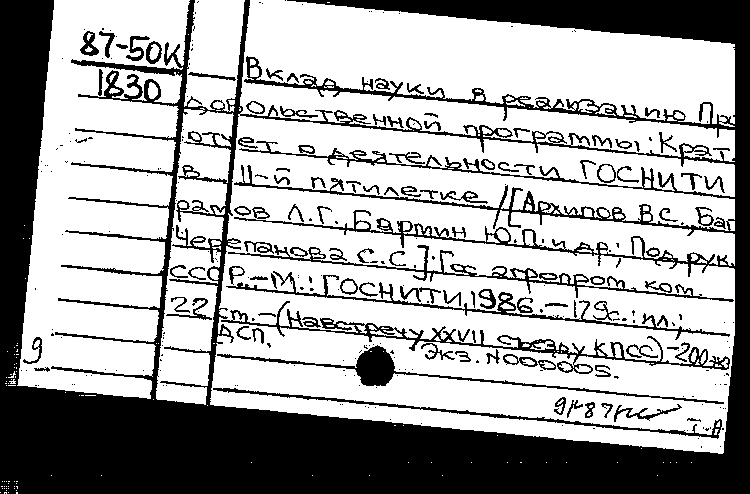 87-50К
1830
Вклад науки в реализацию Пр
довольственной программы: Крат.
отчет о деятельности ГОСНИТИ
в 11-й пятилетке / [Архипов В.С., Баг
рамов Л.Г., Бармин Ю.П. и др.; Под рук.
Черепанова С.С.]; Гос агропром. ком.
СССР.-М.: ГОСНИТИ, 1986.-179с.: ил.;
22 см.-(Навстречу XXVII съезду КПСС)-200 экз
ДСП. Экз. N000005.
9
Т.-А